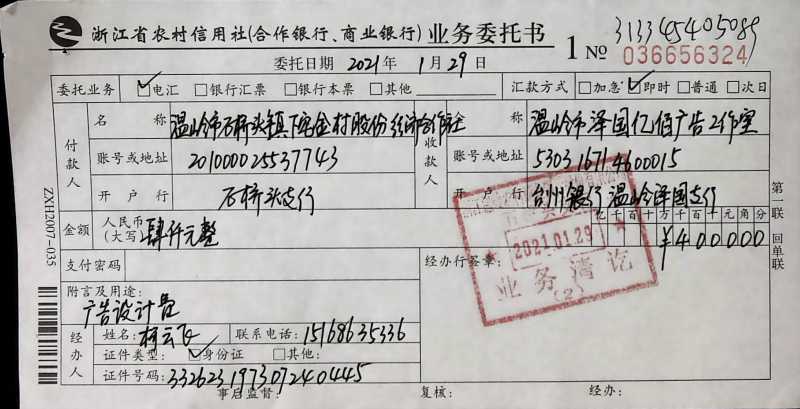 浙江省农村信用社(合作银行、商业银行) 业务委托书
313345405089
1 № 036656324
委托日期 2021年 1月29日
委托业务 ☑电汇 □银行汇票 □银行本票 □其他 汇款方式 □加急 ☑即时 □普通 □次日
付款人 名称 温岭市石桥头镇下宅金村股份经济合作社
收款人 称 温岭市泽国亿佰广告工作室
账号或地址 201000025537743 账号或地址 530316714600015
开户行 石桥头支行 开户行 台州银行温岭泽国支行
金额 人民币(大写) 肆仟元整 亿千百十万千百十元角分
¥400000
支付密码 经办行签章:
2021.01.29
业务清讫
(2)
附言及用途:
广告设计费
经办人 姓名: 柯云飞 联系电话: 15168635336
证件类型: ☑身份证 □其他:
证件号码: 332623197307240445
事后监督: 复核: 经办:
ZXH2007-035
第一联 回单联